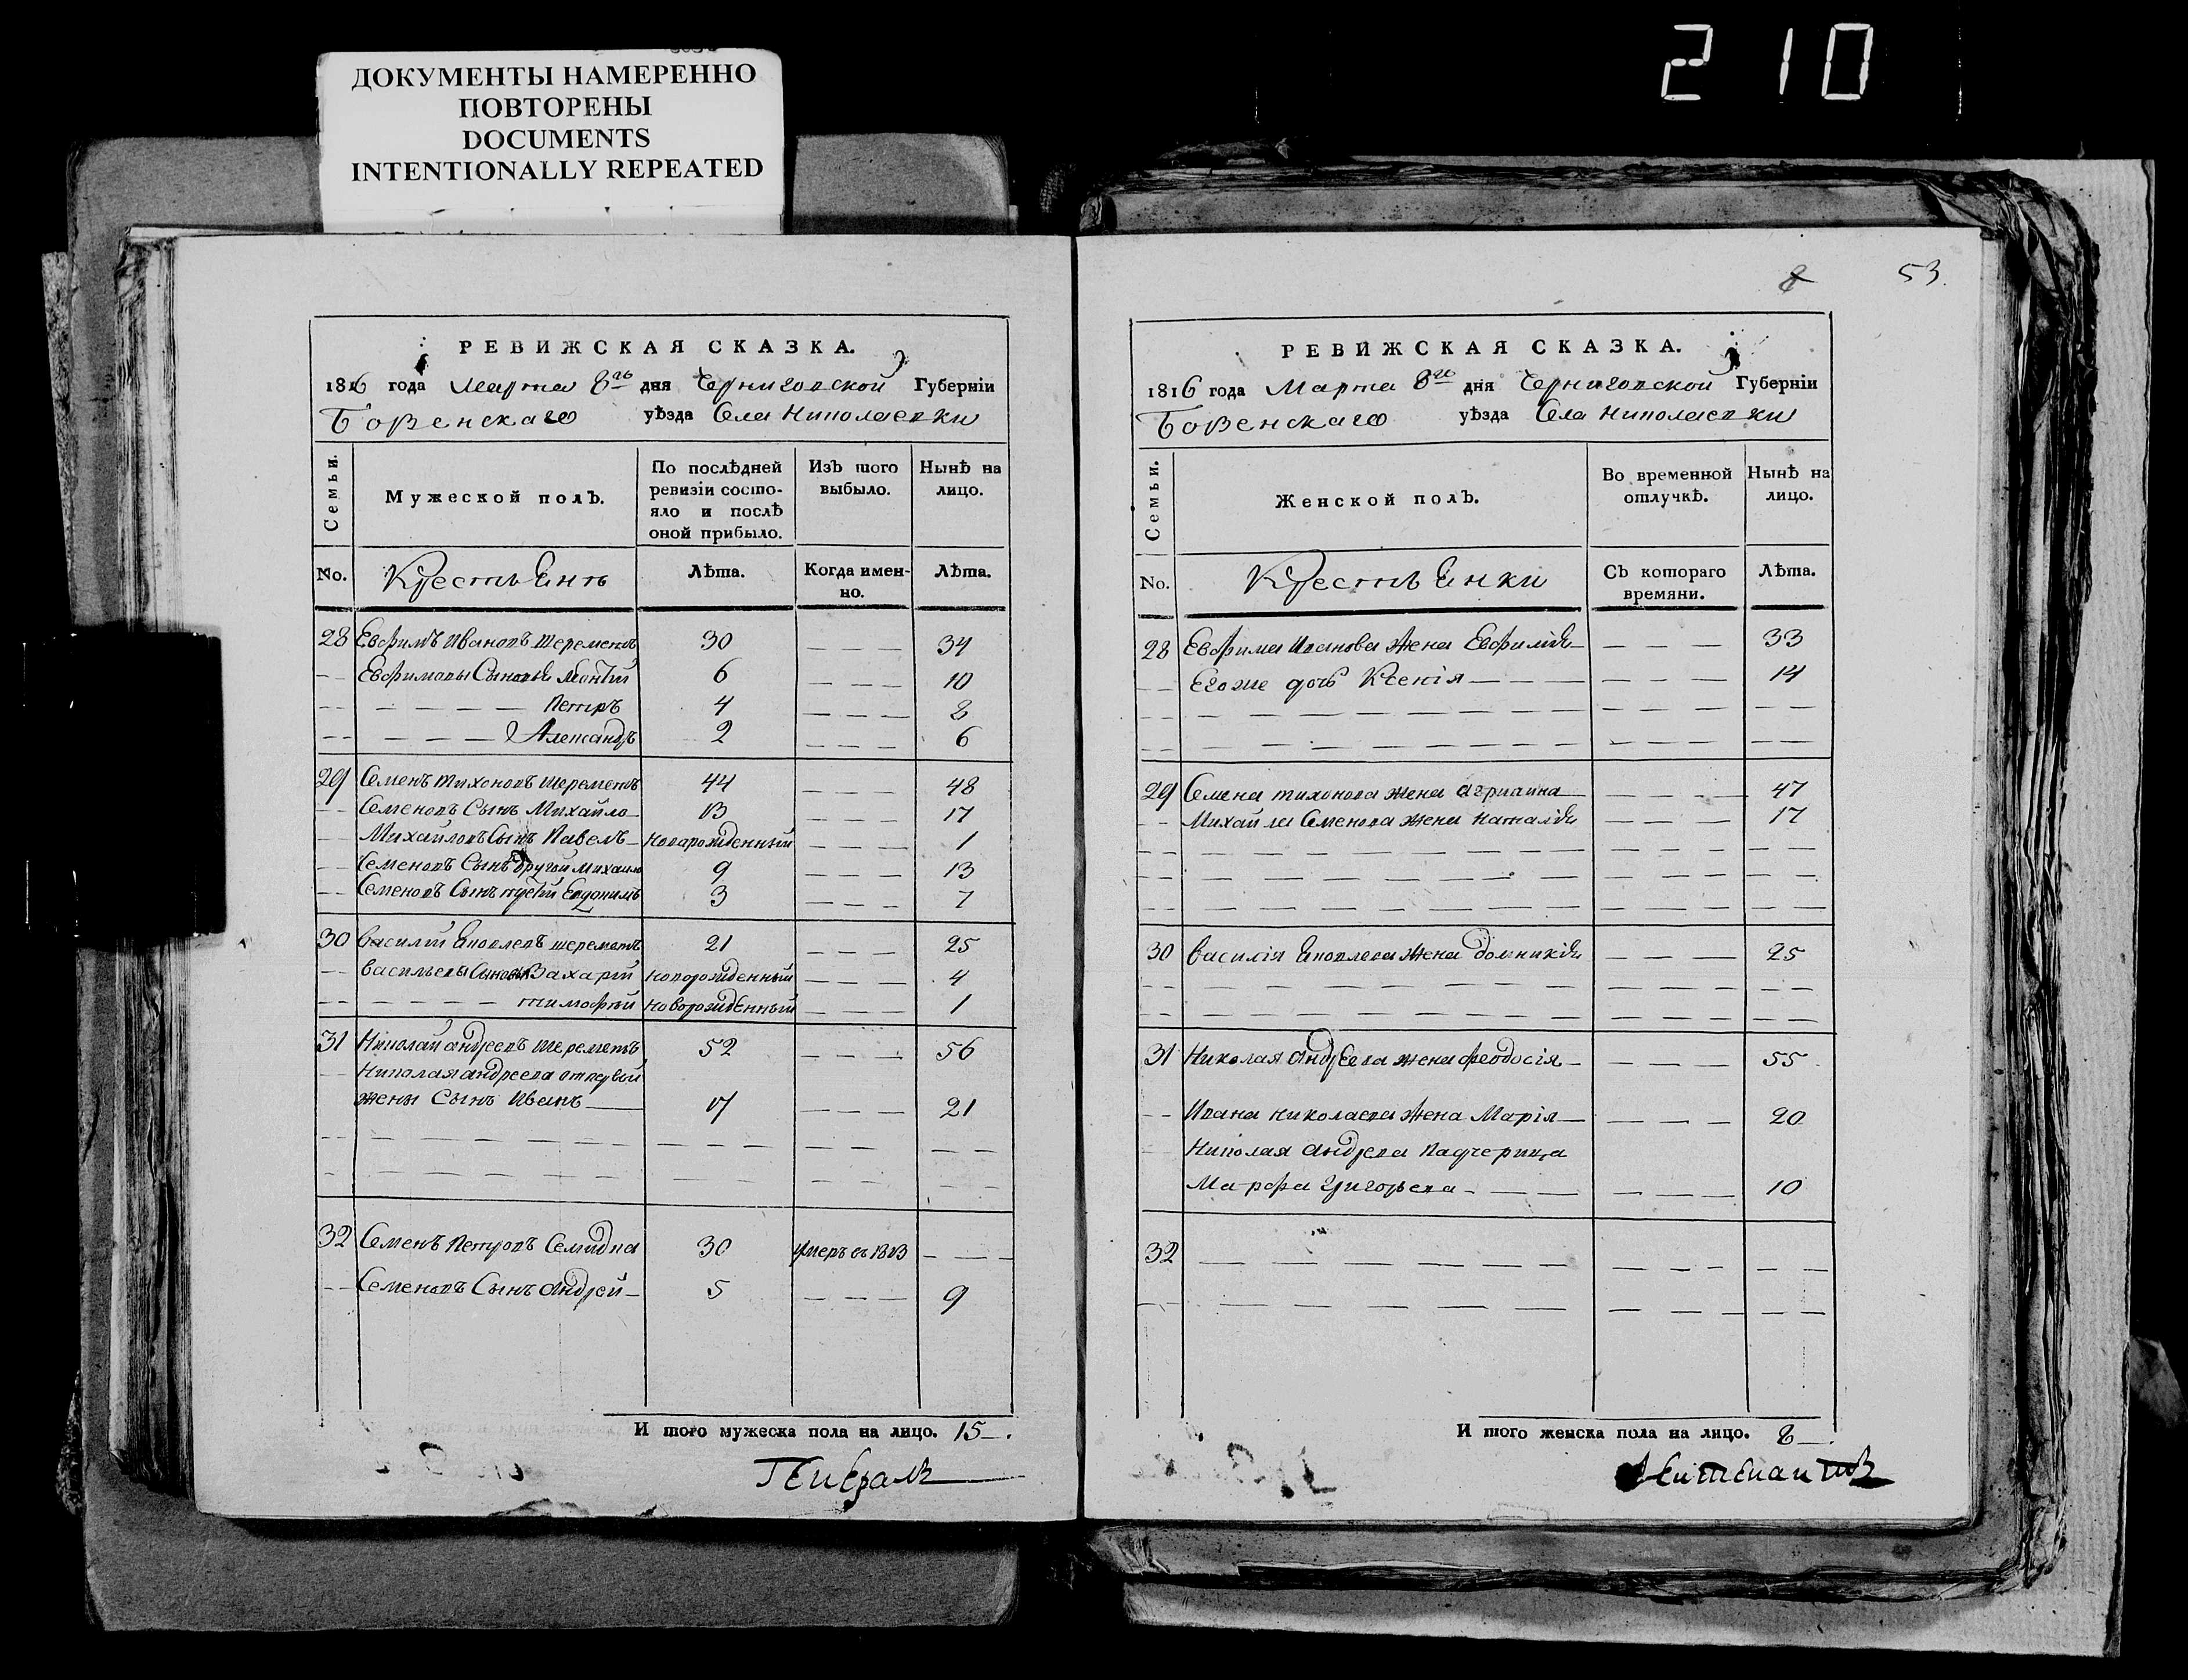 210
ДОКУМЕНТЫ НАМЕРЕННО
ПОВТОРЕНЫ
DOCUMENTS
INTENTIONALLY REPEATED
РЕВИЖСКАЯ СКАЗКА.
1816 года Марта 8го дня Черниговской Губерніи
Борзенскаго уѣзда Села Николаевки
Семьи. Мужеской полъ. По послѣдней ревизіи состояло и послѣ оной прибыло. Изъ того выбыло. Нынѣ на лицо.
No. Крестьянъ Лѣта. Когда именно. Лѣта.
28 Евфимъ Ивановъ Шереметъ 30 — — — 34
Евфимовы Сыновья 6 — — — 10
— — — — Петръ 4 — — — 8
— — — Александръ 2 — — — 6
29 Семенъ Тихоновъ Шереметъ 44 — — — 48
Семеновъ Сынъ Михайло 13 — — — 17
Михайловъ Сынъ Павелъ новорожденный — — — 1
Семеновъ Сынъ другой Михаило 9 — — — 13
Семеновъ Сынъ третій Евдокимъ 3 — — — 7
30 Василій Яковлевъ шереметъ 21 — — — 25
Васильевы Сыновья Захарій новорожденный — — — 4
— — — — тимофѣй новорожденный — — — 1
31 Николай андреевъ шереметъ 52 — — — 56
Николая андреева отпервой
жены Сынъ Иванъ 17 — — — 21
32 Семенъ Петровъ 30 умеръ въ 1813 — — —
Семеновъ Сынъ Андрей 5 — — — 9
И того мужеска пола на лицо. 15
Генералъ
8 53.
РЕВИЖСКАЯ СКАЗКА.
1816 года Марта 8го дня Черниговской Губерніи
Борзенскаго уѣзда Села Николаевки
Семьи. Женской полъ. Во временной отлучкѣ. Нынѣ на лицо.
No. Крестьянки Съ котораго времяни. Лѣта.
28 Евфима Иванова жена Евфимія — — — 33
Егоже дочь Ксенія — — — 14
29 Семена тихонова жена агрипина — — — 47
Михайла Семенова жена наталія — — — 17
30 Василія Яковлева жена домникія — — — 25
31 Николая Андреева жена феодосія — — — 55
Ивана николаева жена Марія — — — 20
Николая андреева падчерица
Марфа Григорьева — — — 10
32
И того женска пола на лицо. 8
Лейтенантъ